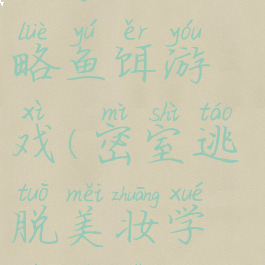 lüè yú ěr yóu
略鱼饵游
xì mì shì táo
戏(密室逃
tuō měi zhuāng xué
脱美妆学